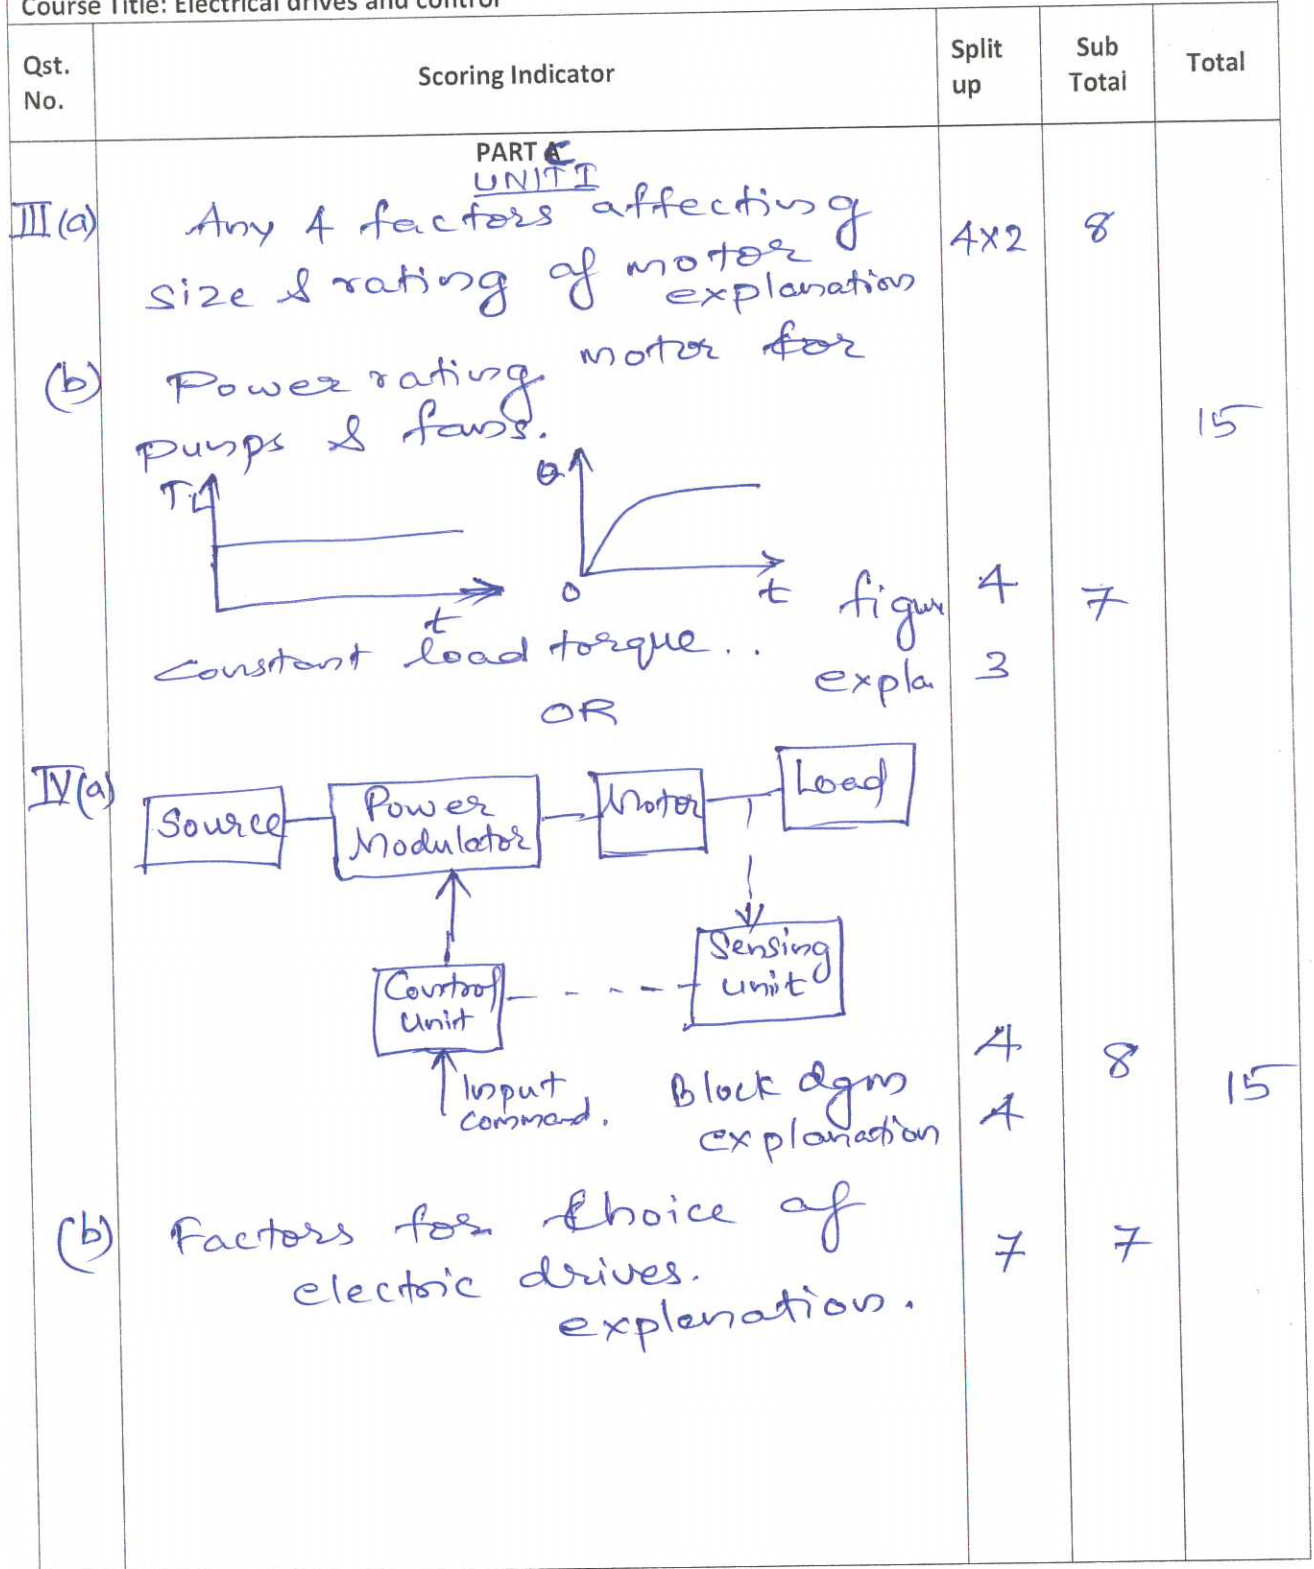 Course Title: Electrical drives and control
Qst. No.
Scoring Indicator
Split up
Sub Total
Total
PART C
UNIT I
III (a)
Any 4 factors affecting
size & rating of motor
explanation
4x2
8
(b)
Power rating motor for
pumps & fans.
15
TL
t
θ
0
t
figure
4
7
constant load torque..
expla.
3
OR
IV(a)
Source
Power
Modulator
Motor
Load
Sensing
unit
Control
Unit
Input
command.
Block dgm
4
8
15
explanation
4
(b)
Factors for choice of
electric drives.
7
7
explanation.